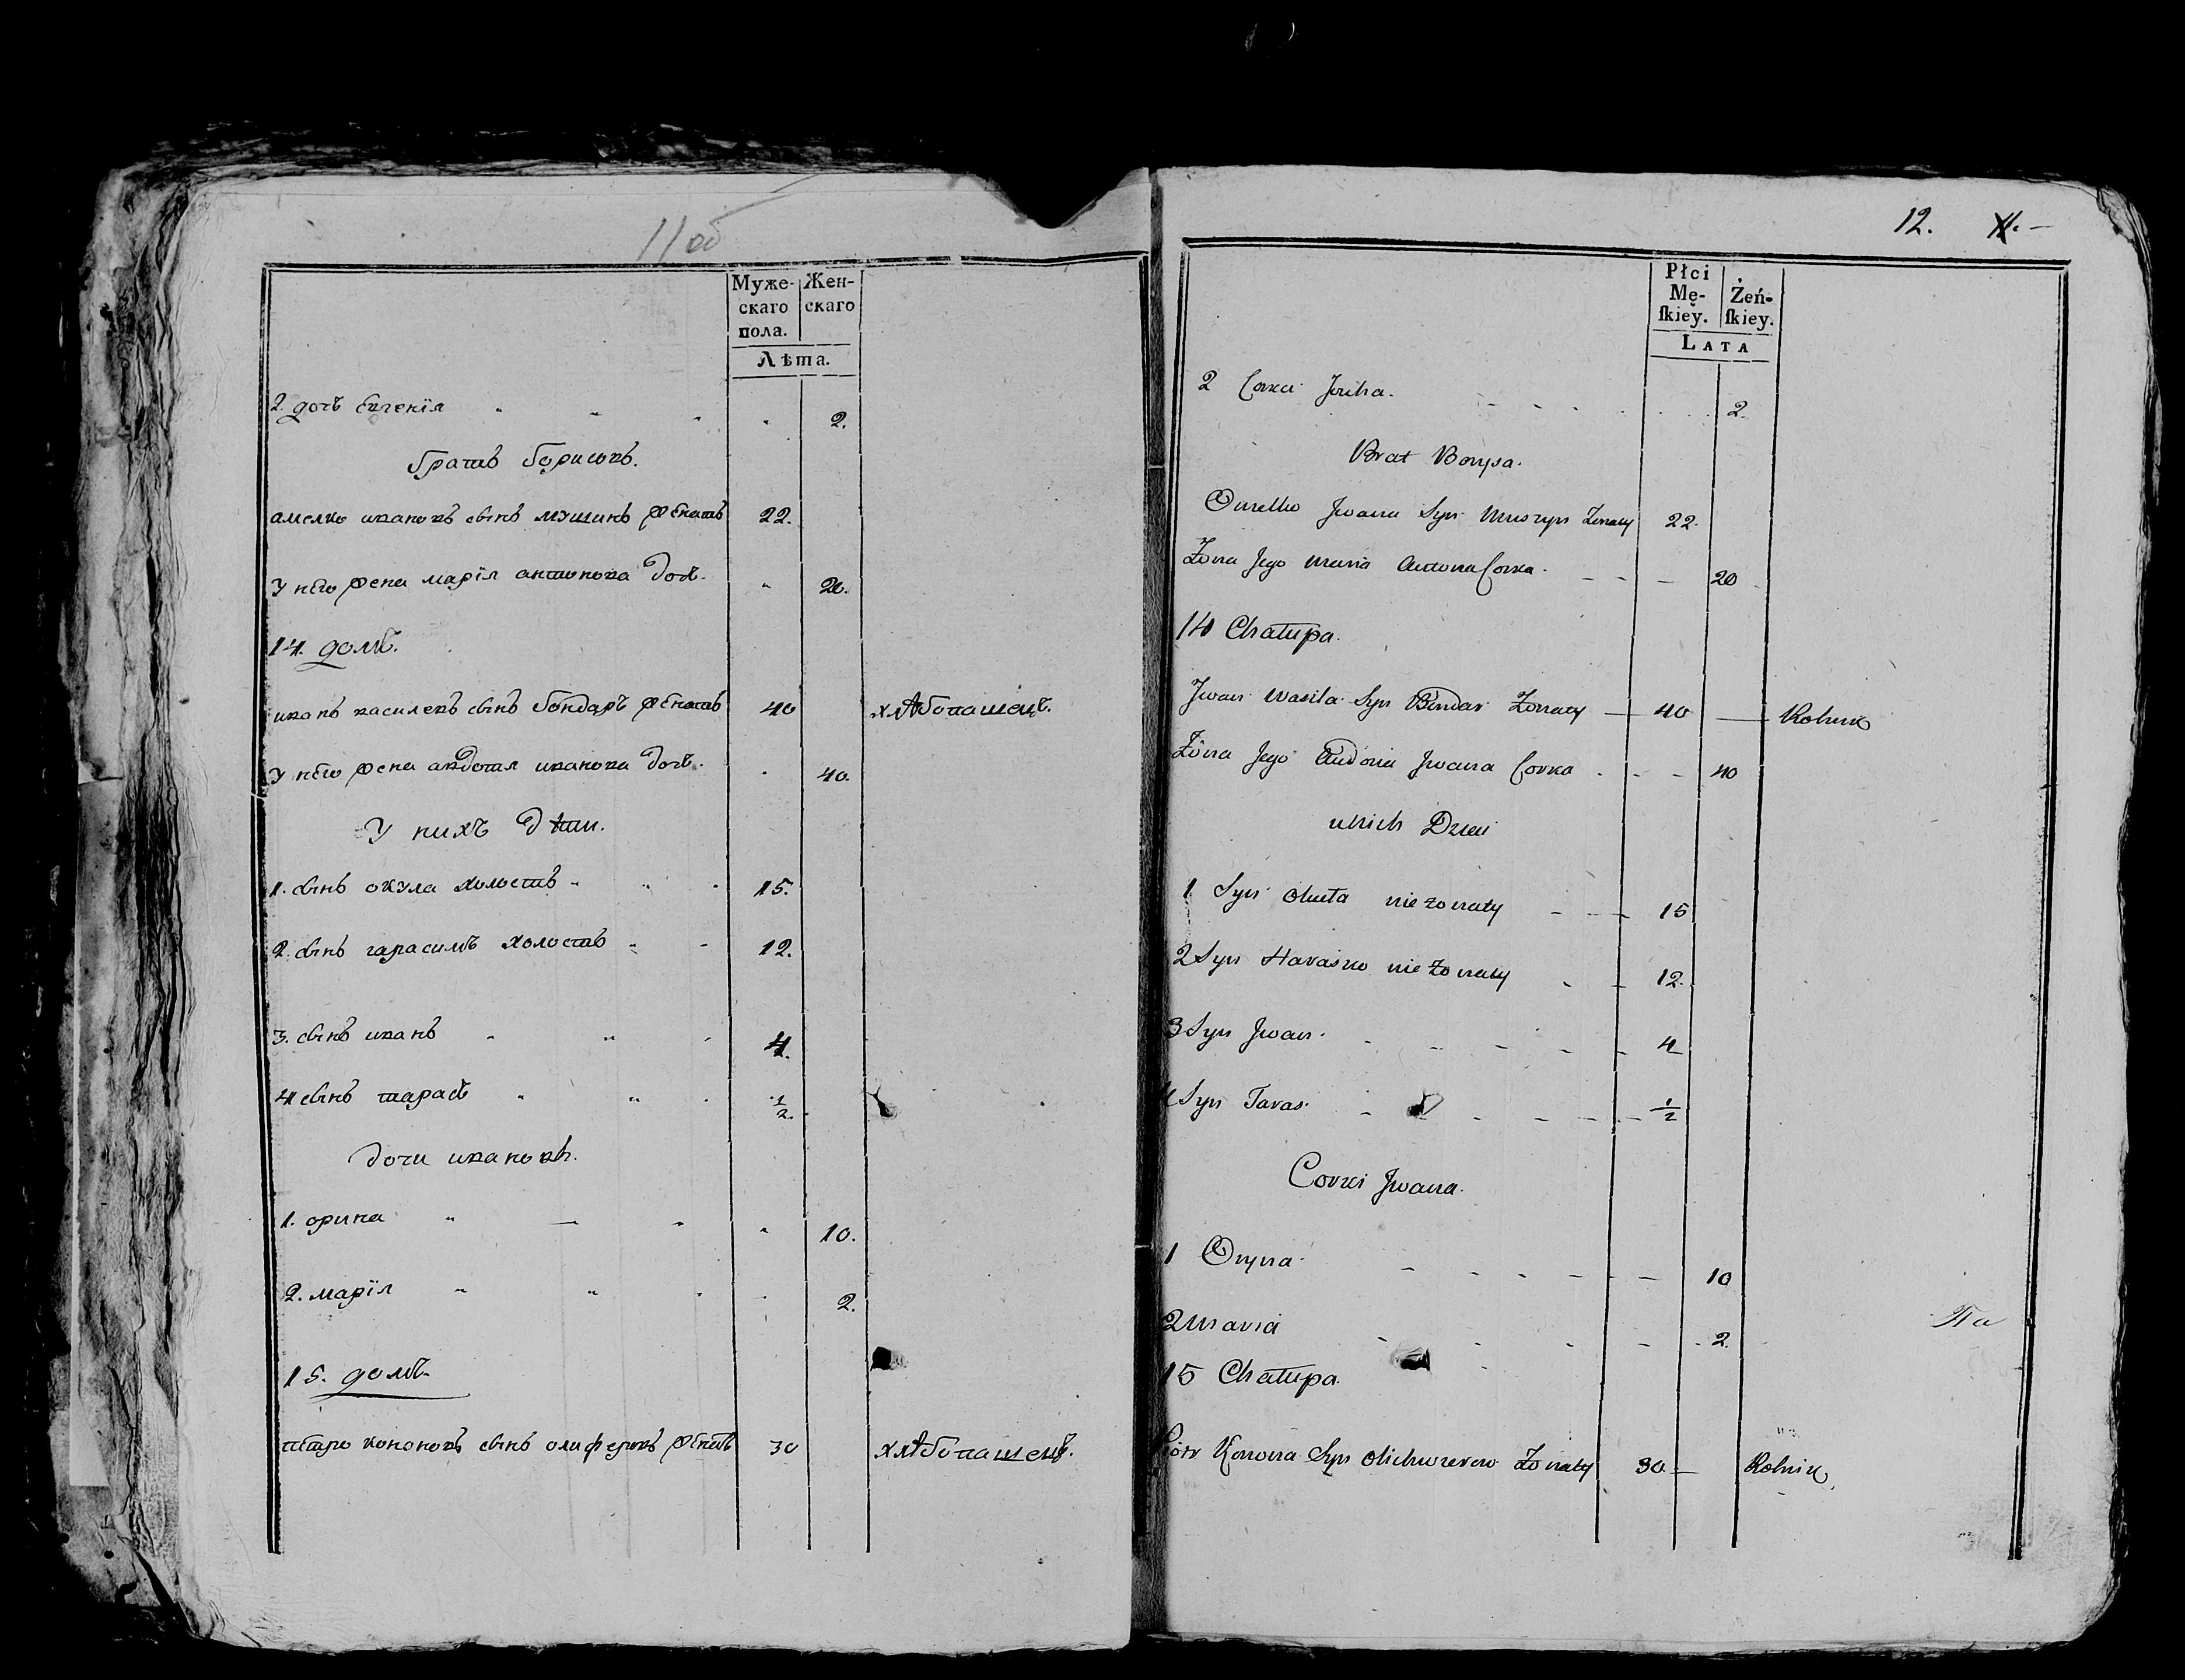 11об
Муже-
скаго
пола.
Жен-
скаго
Лѣта.
2. дочь Евгенїя 2.
братъ борисовъ.
амелко ивановъ сынъ мушинъ женатъ 22.
у него жена марїя антонова дочь. 20.
14. домъ.
иванъ василевъ сынъ бондаръ женатъ 40 хлѣбопашецъ.
у него жена авдотия иванова дочь. 40.
У нихъ дѣти.
1. сынъ окула холостъ 15.
2. сынъ гарасимъ холостъ 12.
3. сынъ иванъ 4.
4 сынъ тарасъ 1/2.
дочи ивановы.
1. орина 10.
2. марїя 2.
15. домъ.
петро кононовъ сынъ олиферовъ женатъ 30 хлѣбопашецъ.
12. 11.-
Płci
Mę-
ſkiey.
Żeń-
ſkiey.
LATA
2 Corka 2.
Brat Borysa.
Omelko Jwana Syn Muszyn Żonaty 22.
Żona Jego Maria Antona Corka 20
14 Chałupa.
Jwan Wasila Syn Bondar Żonaty 40 Rolnik
Żona Jego Audotia Jwana Corka 40
u Nich Dzieci
1 Syn Okuła nie żonaty 15
2 Syn Harasko nie żonaty 12.
3 Syn Jwan 4
4 Syn Taras 1/2
Corki Jwana.
1 Oryna 10
2 Maria 2.
15 Chałupa.
Piotr Konona Syn Żonaty 30 Rolnik
Па